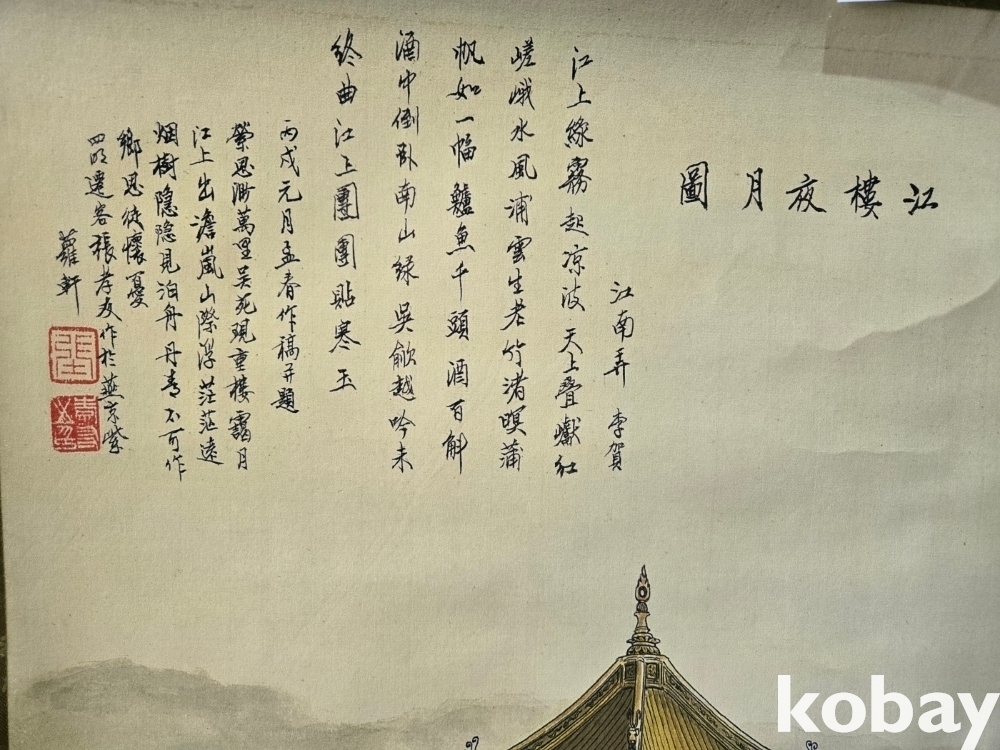 江樓夜月圖
江南弄 李賀
江上綠霧起凉波天上叠巘紅
嵯峨水風浦雲生老竹渚暝蒲
帆如一幅鱸魚千頭酒百斛
酒中倒卧南山綠吳歈越吟未
終曲江上團團貼寒玉
丙戌元月孟春作稿并題
縈思渺萬里吴苑現重樓靄月
江上出澹嵐山際浮茫茫遠
烟樹隱隱見泊舟丹青不可作
鄉思徒懷憂
四明遷客張孝友作於燕京紫
蘿軒
kobay